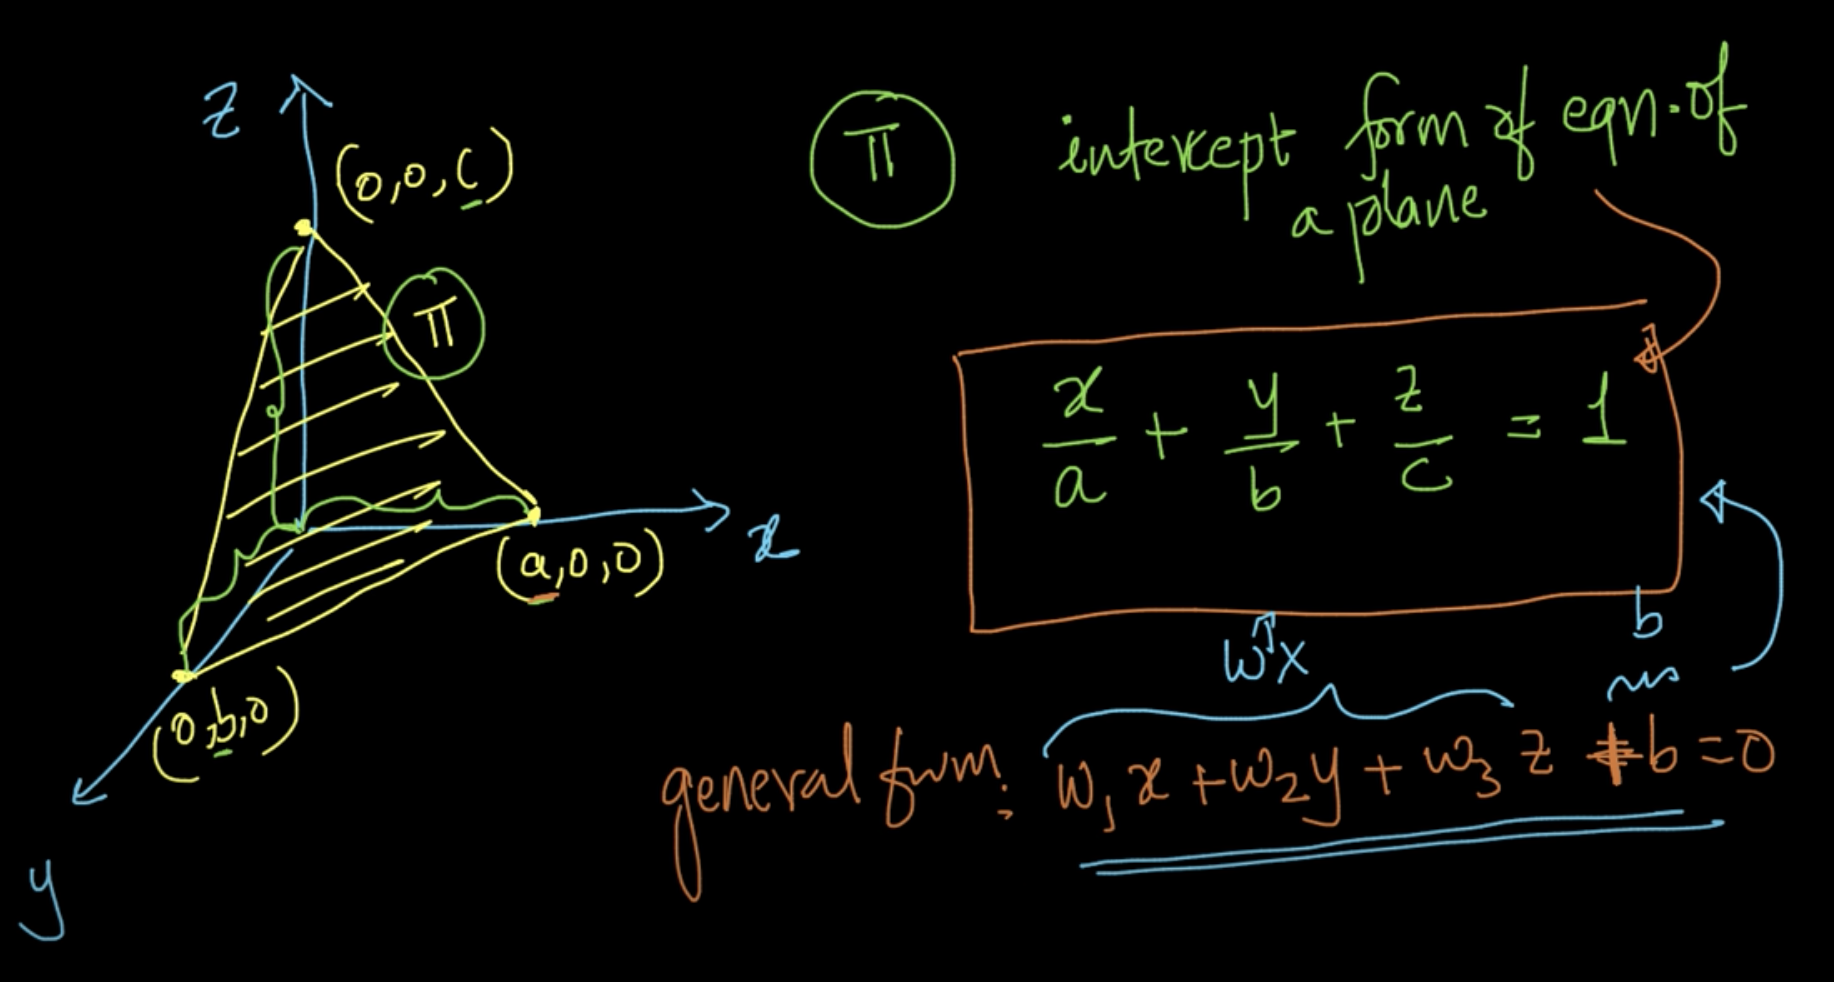 z
(0,0,c)
π
(a,0,0)
x
(0,b,0)
y
π
intercept form of eqn. of
a plane
x/a + y/b + z/c = 1
wᵀx
b
general form: w₁x + w₂y + w₃z + b = 0